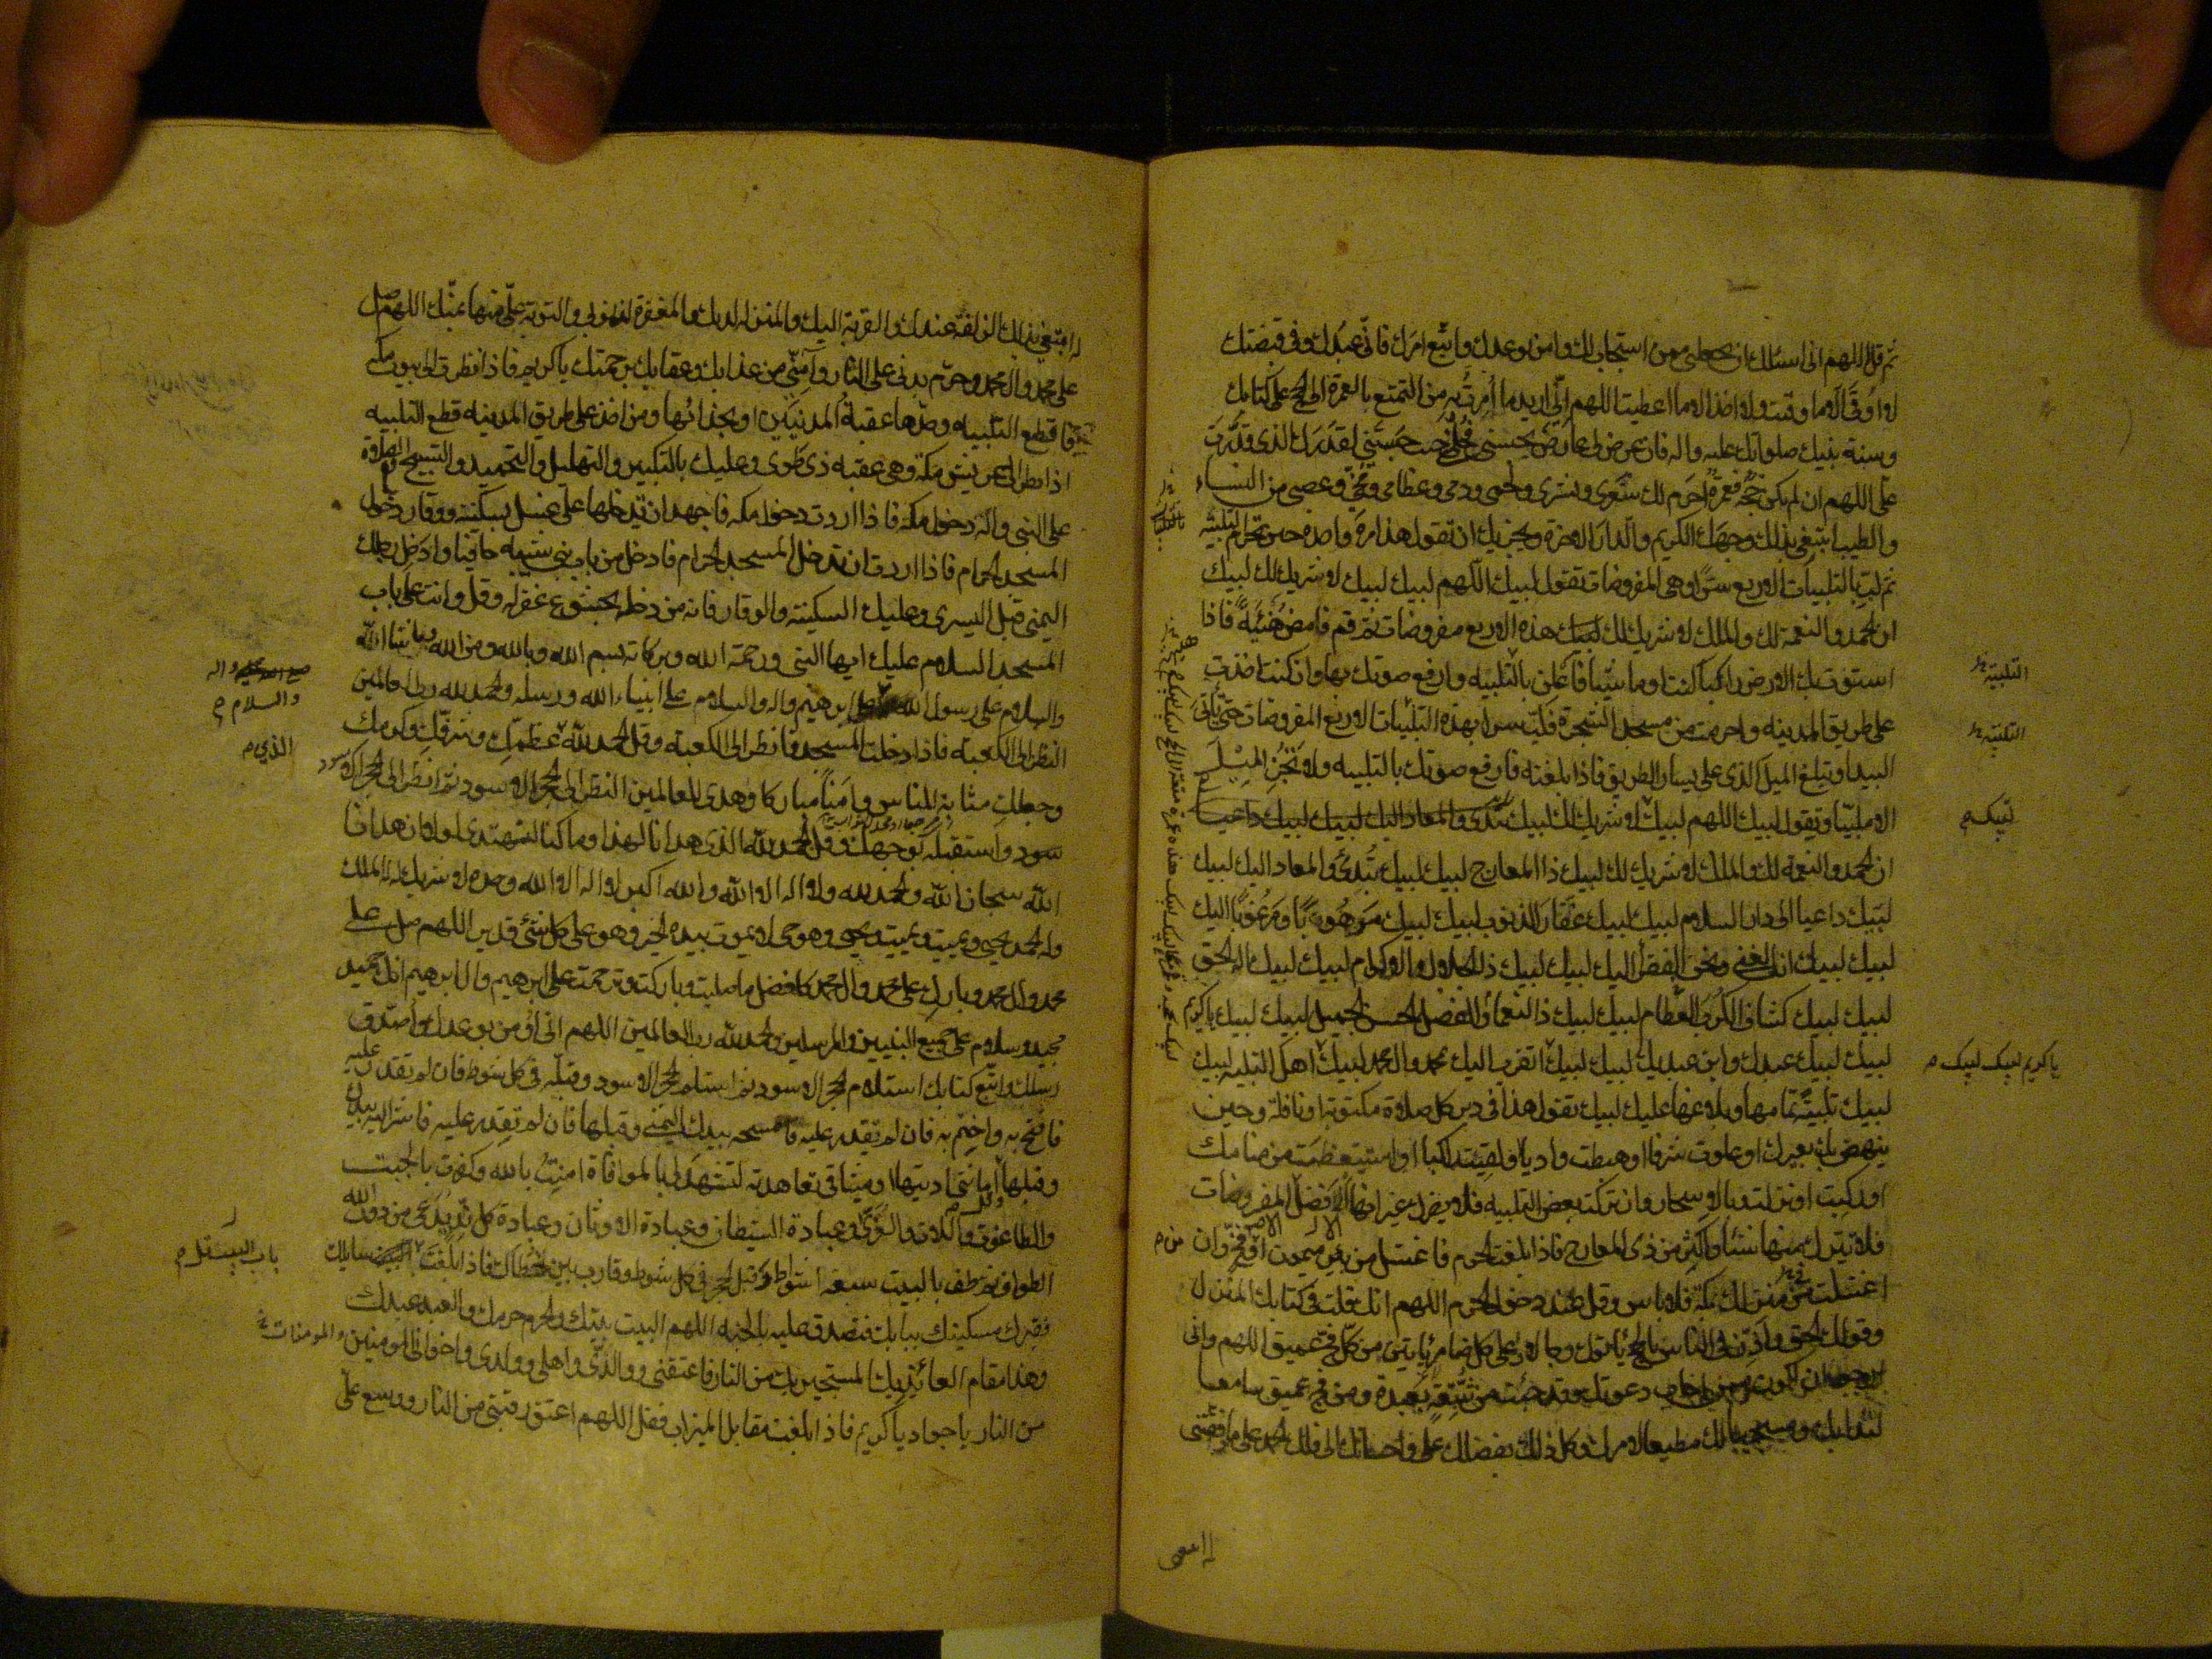 ثم قل اللهم انى اسئلك ان تجعلنى ممن استجاب لك وامن بوعدك واتبع امرك فانى عبدك وفى قبضتك
لا اوقى الا ما وقيت ولا اخذ الا ما اعطيت اللهم انى اريد ما امرت به من التمتع بالعمرة الى الحج على كتابك
وسنة نبيك صلواتك عليه واله فان عرض لى عارض يحبسنى فحلنى حيث حبستنى لقدرك الذى قدرت
على اللهم ان لم يكن حجة فعمرة احرم لك شعرى وبشرى ولحمى ودمى وعظامى ومخى وعصبى من النساء
والطيب ابتغى بذلك وجهك الكريم والدار الاخرة ويجزيك ان تقول هذا مرة واحدة حين تحرم
ثم لب بالتلبيات الاربع سرا وهى المفروضات تقول لبيك اللهم لبيك لبيك لا شريك لك لبيك
ان الحمد والنعمة لك والملك لا شريك لك لبيك هذه الاربع مفروضات ثم قم فامض هنيئة فاذا
استوت بك الارض راكبا كنت او ماشيا فاعلن بالتلبيه وارفع صوتك بها وان كنت اخذت
على طريق المدينه واحرمت من مسجد الشجرة فلب سرا بهذه التلبيات الاربع المفروضات حتى تاتى
البيدا وتبلغ الميل الذى على يسار الطريق فاذا بلغته فارفع صوتك بالتلبيه ولا تجز الميل
الا ملبيا وتقول لبيك اللهم لبيك لا شريك لك لبيك
ان الحمد والنعمة لك والملك لا شريك لك لبيك ذا المعارج لبيك لبيك تبدئ والمعاد اليك لبيك
لبيك داعيا الى دار السلام لبيك لبيك غفار الذنوب لبيك لبيك مرهوبا ومرغوبا اليك
لبيك لبيك انت الغنى ونحن الفقرا اليك لبيك لبيك ذا الجلال والاكرام لبيك لبيك اله الحق
لبيك لبيك كشاف الكرب العظام لبيك لبيك ذا النعماء والفضل الحسن الجميل لبيك لبيك يا كريم
لبيك لبيك عبدك وابن عبديك لبيك لبيك اتقرب اليك بمحمد وال محمد لبيك اهل التلبيه لبيك
لبيك تلبية تمامها وبلاغها عليك لبيك تقول هذا فى دبر كل صلاة مكتوبة او نافلة وحين
ينهض بك بعيرك او علوت شرفا او هبطت واديا او لقيت راكبا او استيقظت من منامك
او ركبت او نزلت وبالاسحار وان تركت بعض التلبيه فلا يضرك غير انها افضل الا المفروضات
فلا تترك منها شيئا واكثر من ذى المعارج فاذا بلغت الحرم فاغتسل من بئر ميمون او فخ وان
اغتسلت فى منزلك بمكة فلا باس وقل عند دخول الحرم اللهم انك قلت فى كتابك المنزل
وقولك الحق واذن فى الناس بالحج ياتوك رجالا وعلى كل ضامر ياتين من كل فج عميق اللهم وانى
ارجو ان اكون ممن اجاب دعوتك وقد جئت من شقة بعيدة ومن فج عميق سامعا
لندائك ومستجيبا لك مطيعا لامرك وكل ذلك بفضلك على واحسانك الى فلك الحمد على ما وفقتنى
التلبيه
التلبيه
لبيك
يا كريم لبيك لبيك
له ابتغى بذلك الزلفة عندك والقربة اليك والمنزلة لديك والمغفرة لذنوبى والتوبة على منها بمنك اللهم صل
على محمد وال محمد وحرم بدنى على النار وآمنى من عذابك وعقابك برحمتك يا كريم فاذا نظرت الى بيوت مكه
فاقطع التلبيه وحدها عقبة المدنيين او بحذائها ومن اخذ على طريق المدينه قطع التلبيه
اذا نظر الى عريش مكة وهى عقبه ذى طوى وعليك بالتكبير والتهليل والتحميد والتسبيح والصلاة
على النبى واله دخول مكه فاذا اردت دخول مكه فاجهد ان تدخلها على غسل بسكينة ووقار دخول
المسجد الحرام فاذا اردت ان تدخل المسجد الحرام فادخل من باب بنى شيبه حافيا وادخل رجلك
اليمنى قبل اليسرى وعليك السكينة والوقار فانه من دخله بخشوع غفر له وقل وانت على باب
المسجد السلام عليك ايها النبى ورحمة الله وبركاته بسم الله وبالله ومن الله وما شا الله
والسلام على رسول الله وعلى ابرهيم واله والسلام على انبياء الله ورسله والحمد لله رب العالمين
النظر الى الكعبة فاذا دخلت المسجد فانظر الى الكعبة وقل الحمد لله عظمك وشرفك وكرمك
وجعلك مثابة للناس وامنا مباركا وهدى للعالمين النظر الى الحجر الاسود ثم انظر الى الحجر الا
سود واستقبله بوجهك وقل الحمد لله الذى هدانا لهذا وما كنا لنهتدى لولا ان هدانا
الله سبحان الله والحمد لله ولا اله الا الله والله اكبر لا اله الا الله وحده لا شريك له له الملك
وله الحمد يحيى ويميت ويميت ويحيى وهو حى لا يموت بيده الخير وهو على كل شئ قدير اللهم صل على
محمد وال محمد وبارك على محمد وال محمد كافضل ما صليت وباركت وترحمت على ابرهيم وال ابرهيم انك حميد
مجيد وسلام على جميع النبيين والمرسلين والحمد لله رب العالمين اللهم انى اؤمن بوعدك واصدق
رسلك واتبع كتابك استلام الحجر الاسود ثم استلم الحجر الاسود وقبله فى كل شوط فان لم تقدر عليه
فافتح به واختم به فان لم تقدر عليه فامسحه بيدك اليمنى وقبلها فان لم تقدر عليه فاشر اليه بيدك
وقبلها امانتى اديتها وميثاقى تعاهدته لتشهد لى بالموافاة امنت بالله وكفرت بالجبت
والطاغوت واللات والعزى وعبادة الشيطان وعبادة الاوثان وعبادة كل ند يدعى من دون الله
الطواف ثم طف بالبيت سبعة اشواط وقبل الحجر فى كل شوط وقارب بين خطاك فاذا بلغت
فقيرك مسكينك ببابك فتصدق عليه بالجنه اللهم البيت بيتك والحرم حرمك والعبد عبدك
وهذا مقام العائذ بك المستجير بك من النار فاعتقنى ووالدى واهلى وولدى واخوانى المومنين والمومنات
من النار يا جواد يا كريم فاذا بلغت مقابل الميزاب فقل اللهم اعتق رقبتى من النار ووسع على
والسلام
الذى